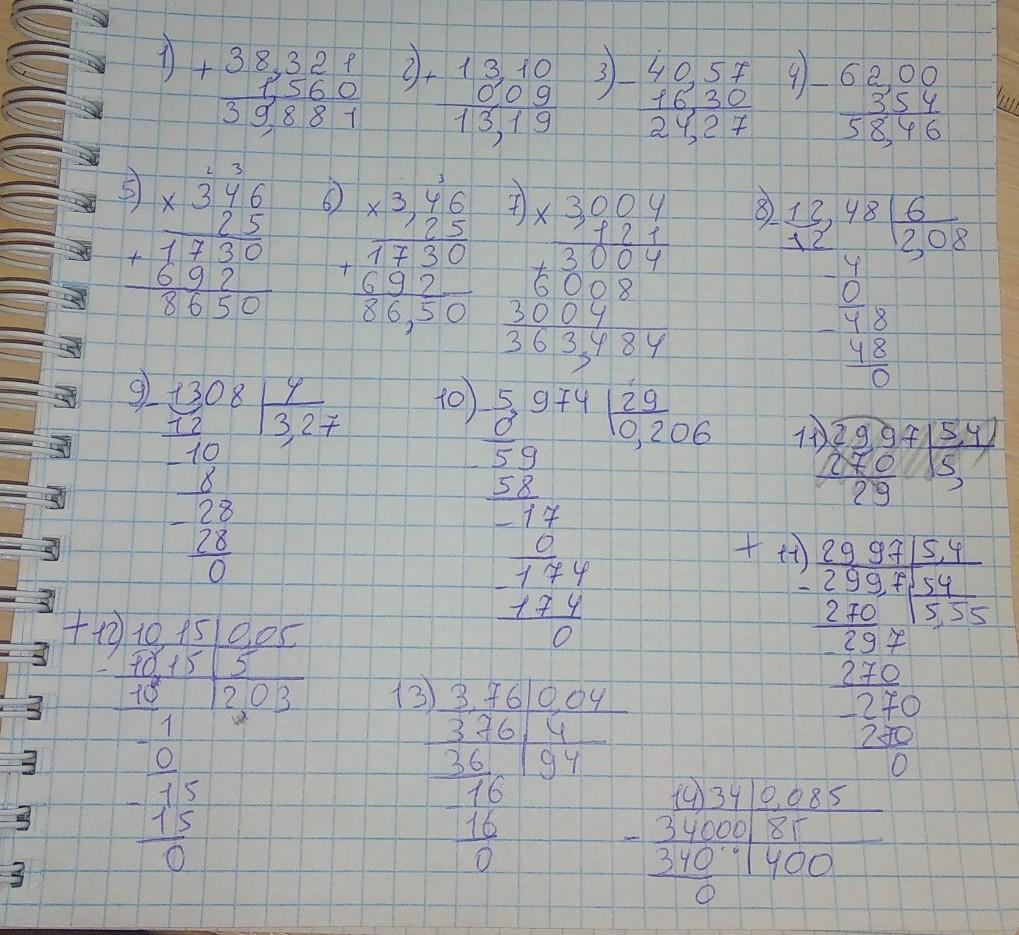 1) + 38,321
1,560
39,881
2) + 13,10
0,09
13,19
3) - 40,57
16,30
24,27
4) - 62,00
3 54
58,46
2 3
5) × 346
25
+ 1730
692
8650
3
6) × 3,46
25
+ 1730
692
86,50
7) × 3,004
121
+ 3004
6008
3004
363,484
8) - 12,48 | 6
12 | 2,08
- 4
0
- 48
48
0
9) - 1308 | 4
12 | 3,27
- 10
8
- 28
28
0
10) - 5,974 | 29
0 | 0,206
- 59
58
- 17
0
- 174
174
0
11) 29,97 | 5,4
270 | 5,
29
+ 11) 29 97 | 5,4
- 299,7 | 54
270 | 5,55
- 297
270
- 270
270
0
+ 12) 10,15 | 0,05
- 10,15 | 5
10 | 203
- 1
0
- 15
15
0
13) 3,76 | 0,04
376 | 4
36 | 94
- 16
16
0
14) 34 | 0,085
- 34000 | 85
340 | 400
0